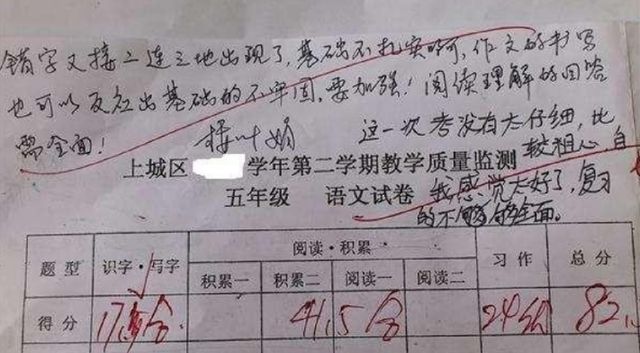 错字又接二连三地出现了，基础不扎实啊，作文的书写
也可以反应出基础的不牢固，要加强！阅读理解的回答
需全面！
这一次考没有太仔细，比
较粗心，自
上城区 学年第二学期教学质量监测
五年级 语文试卷
我感觉太好了，复习
的不够全面。
题型 识字·写字 阅读·积累 习作 总分
积累一 积累二 阅读一 阅读二
得分 17.5分 41.5分 24分 82